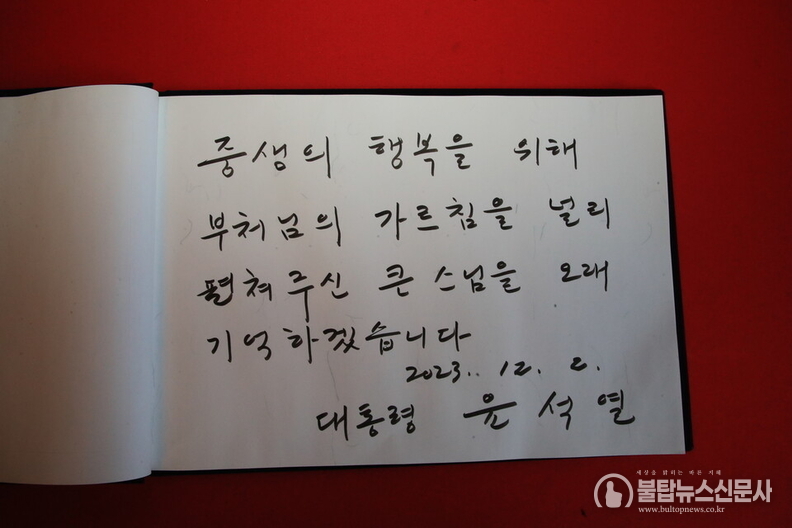 중생의 행복을 위해
부처님의 가르침을 널리
펼쳐주신 큰 스님을 오래
기억하겠습니다
2023.. 12. 2.
대통령 윤석열
세상을 밝히는 바른 지혜
불탑뉴스신문사
www.bultopnews.co.kr